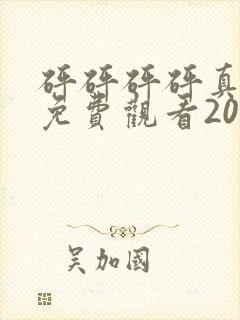 砰砰砰砰真
免費觀看20
吴加國